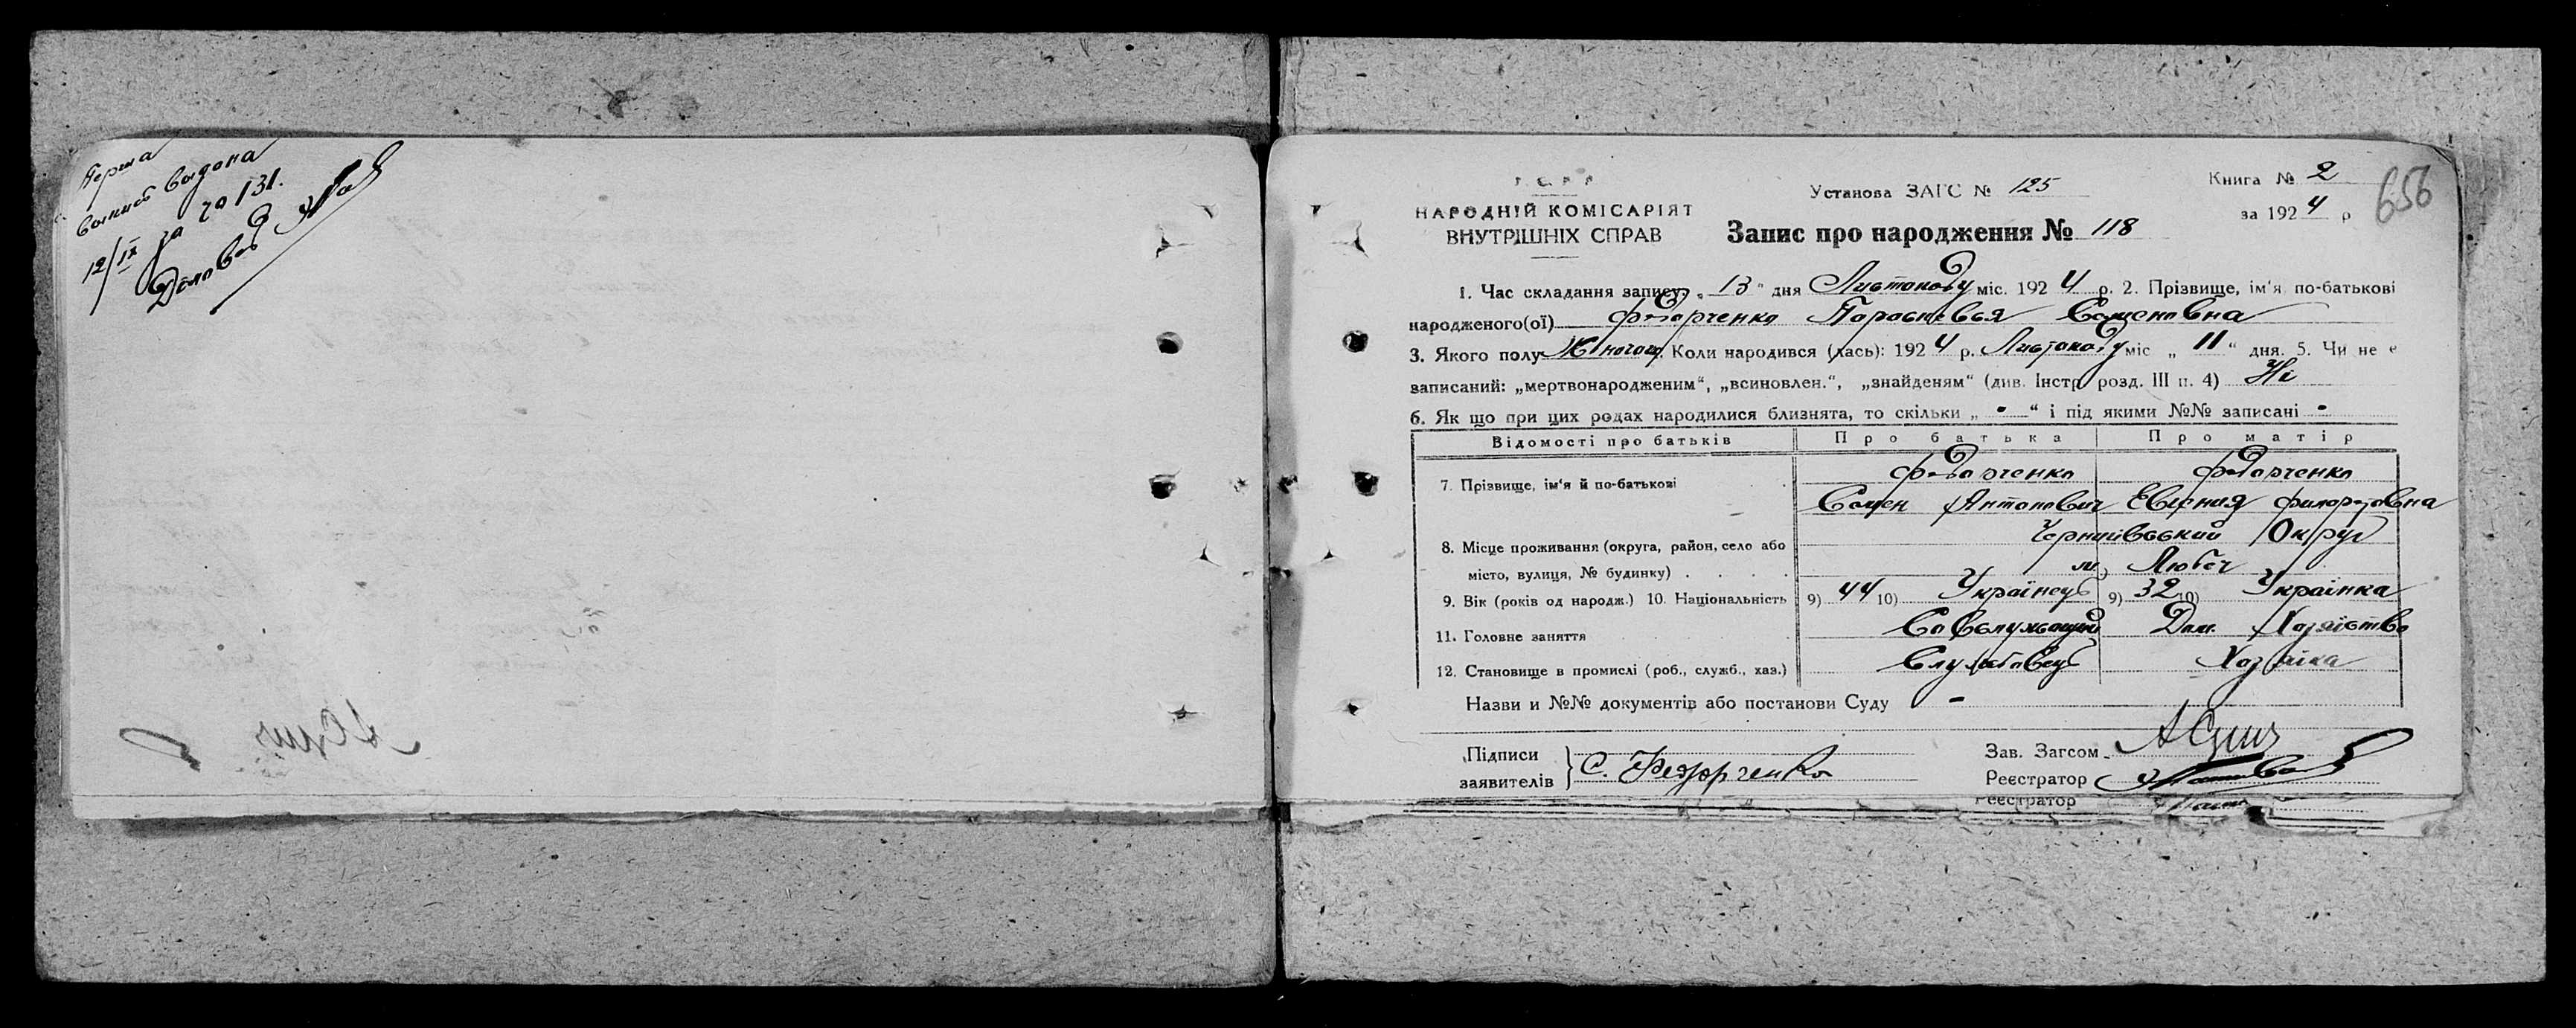 Перша
выписъ выдана
12/IX за № 131.
Діловод
У. С. Р. Р.
НАРОДНІЙ КОМІСАРІЯТ
ВНУТРІШНІХ СПРАВ
Установа ЗАГС № 125
Книга № 2
за 1924 р
656
Запис про народження № 118
1. Час складання запису: „13“ дня Листопаду міс. 1924 р. 2. Прізвище, ім‘я по-батькові
народженого(ої) Федорченко Парасковья Семеновна
3. Якого полу Жіночого. Коли народився (лась): 1924 р. Листопаду міс „11“ дня. 5. Чи не є
записаний: „мертвонародженим“, „всиновлен.“, „знайденям“ (див. Інстр розд. III п. 4) Ні
6. Як що при цих родах народилися близнята, то скільки „-“ і під якими №№ записані -
Відомості про батьків Про батька Про матір
7. Прізвище, ім‘я й по-батькові Федорченко Федорченко
Семен Антонович Евгения Филаретовна
8. Місце проживання (округа, район, село або Чернигівський Округ
місто, вулиця, № будинку) м. Любеч
9. Вік (років од народж.) 10. Національність 9) 44 10) Українець 9) 32 10) Українка
11. Головне заняття Совслужащий Дом. Хозяйство
12. Становище в промислі (роб., служб., хаз.) Службовець Хозяйка
Назви и №№ документів або постанови Суду -
Підписи
заявителів } С. Федорченко
Зав. Загсом
Реєстратор
Реєстратор